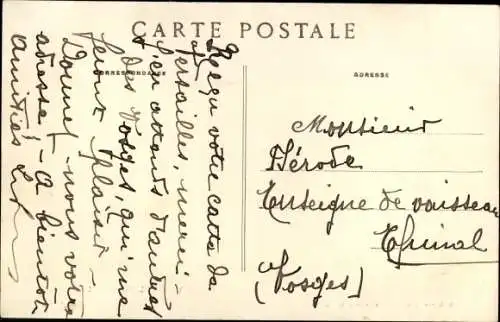 CARTE POSTALE
CORRESPONDANCE
ADRESSE
Reçu votre carte de
Versailles, merci -
J'en attends d'autres
des Vosges, qui me
feront plaisir -
Donnez-nous votre
adresse! - A bientôt
amitiés
Monsieur
Dérode
Enseigne de vaisseau
Epinal
(Vosges)